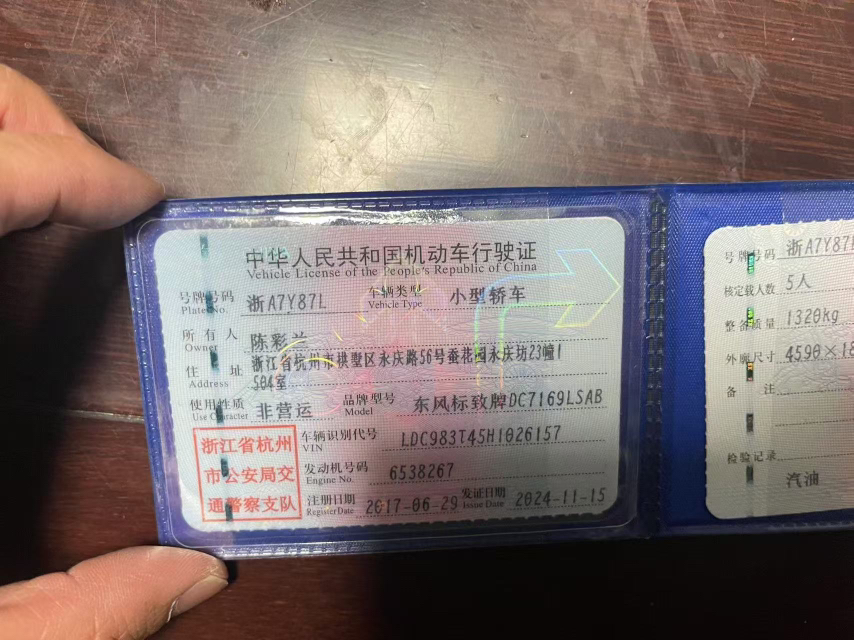 中华人民共和国机动车行驶证
Vehicle License of the People's Republic of China
号牌号码 浙A7Y87L 车辆类型 小型轿车
Plate No. Vehicle Type
所有人 陈彩兰
Owner
住址 浙江省杭州市拱墅区永庆路56号蚕花园永庆坊23幢1
Address 504室
使用性质 非营运 品牌型号 东风标致牌DC7169LSAB
Use Character Model
浙江省杭州
市公安局交
通警察支队
车辆识别代号 LDC983T45H1026157
VIN
发动机号码 6538267
Engine No.
注册日期 2017-06-29 发证日期 2024-11-15
Register Date Issue Date
号牌号码 浙A7Y87L
核定载人数 5人
整备质量 1320kg
外廓尺寸 4590×18
备注
检验记录
汽油